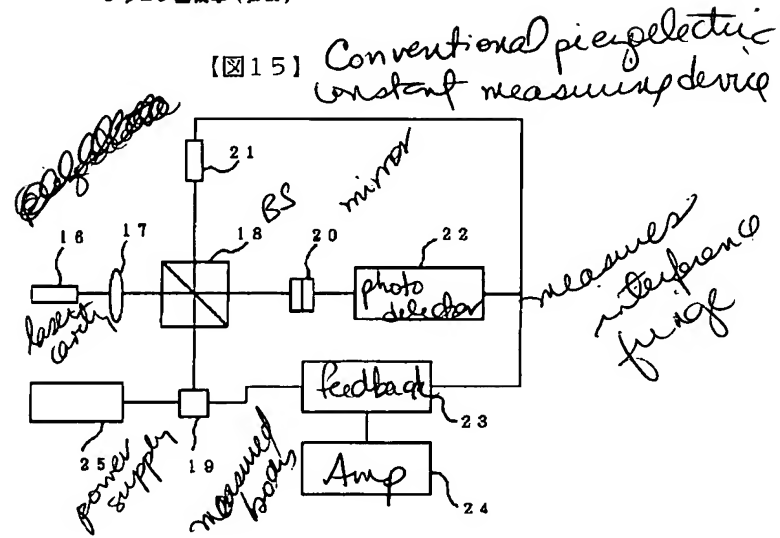 【図15】 Conventional piezoelectric
constant measuring device
21
mirror
16
17
18
BS
20
22
photo
detector
measures
interference
fringe
laser
cavity
feedback
23
25
power
supply
19
measured
body
Amp
24